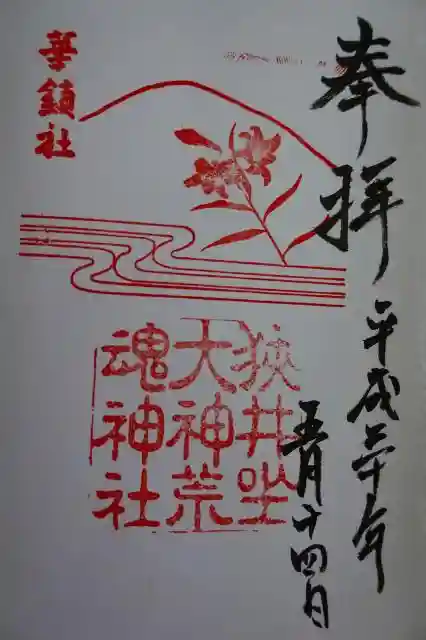 奉拝
平成二十年
五月十四日
華鎮社
狭井坐
大神荒
魂神社